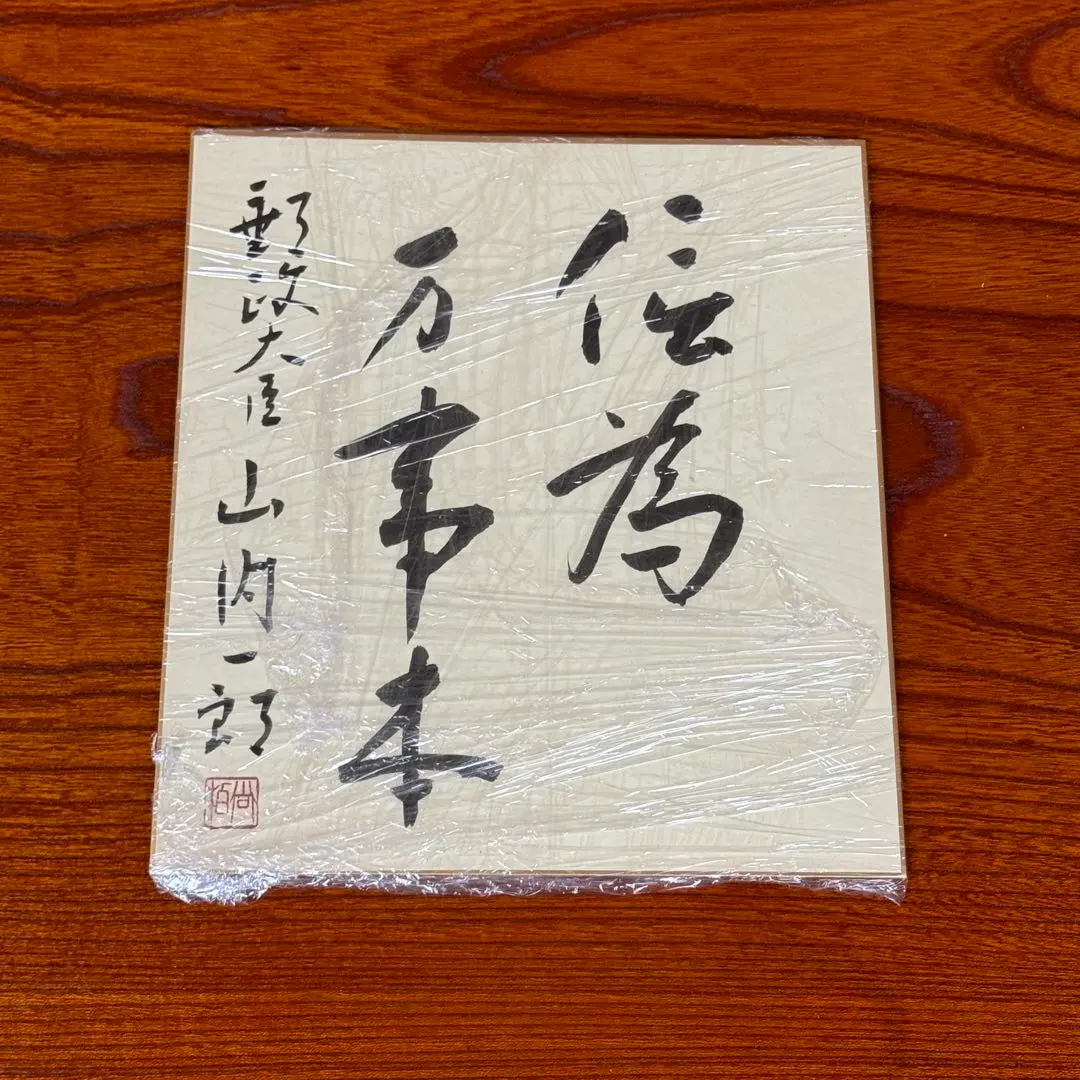 信為
万事本
郵政大臣 山内一郎